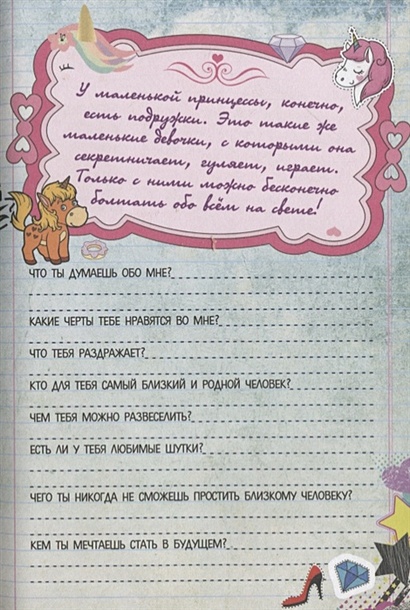 У маленькой принцессы, конечно,
есть подружки. Это такие же
маленькие девочки, с которыми она
секретничает, гуляет, играет.
Только с ними можно бесконечно
болтать обо всём на свете!
ЧТО ТЫ ДУМАЕШЬ ОБО МНЕ?
КАКИЕ ЧЕРТЫ ТЕБЕ НРАВЯТСЯ ВО МНЕ?
ЧТО ТЕБЯ РАЗДРАЖАЕТ?
КТО ДЛЯ ТЕБЯ САМЫЙ БЛИЗКИЙ И РОДНОЙ ЧЕЛОВЕК?
ЧЕМ ТЕБЯ МОЖНО РАЗВЕСЕЛИТЬ?
ЕСТЬ ЛИ У ТЕБЯ ЛЮБИМЫЕ ШУТКИ?
ЧЕГО ТЫ НИКОГДА НЕ СМОЖЕШЬ ПРОСТИТЬ БЛИЗКОМУ ЧЕЛОВЕКУ?
КЕМ ТЫ МЕЧТАЕШЬ СТАТЬ В БУДУЩЕМ?